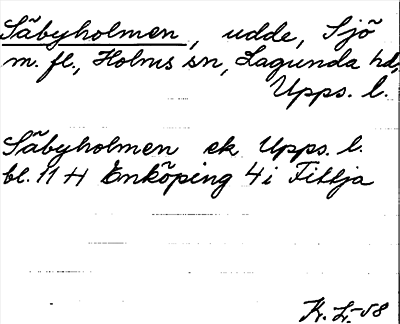 Säbyholmen, udde, Sjö
m. fl., Holms sn, Lagunda hd,
Upps. l.
Säbyholmen ek Upps. l.
bl. 11 H Enköping 4 i Fittja
K. L. -58